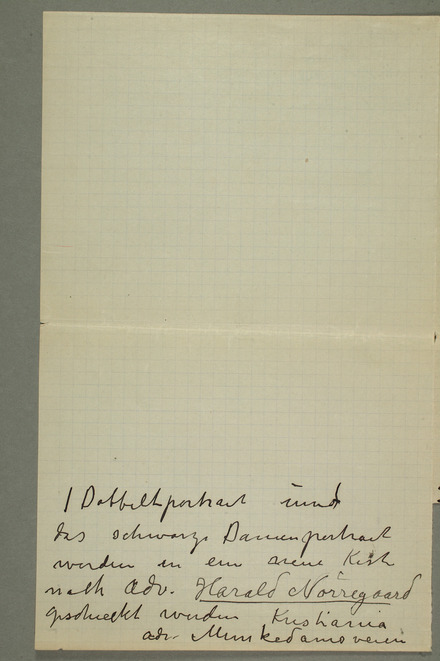 1 Dobbeltportrait und
das schwarze Damenportrait
werden in ein neue Kiste
nach Adv. Harald Nørregaard
geschickt werden Kristiania
adr. Munkedamsveien